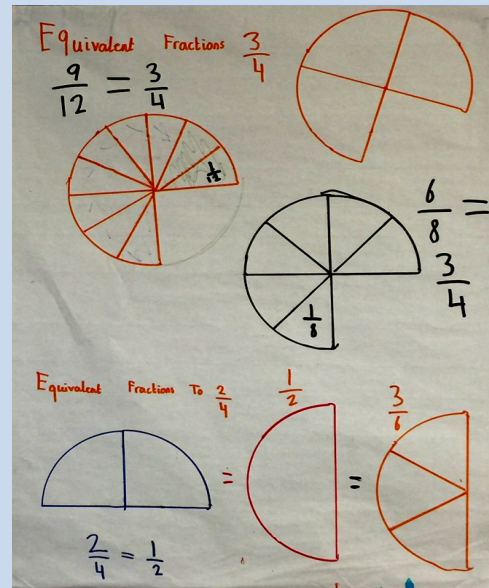 Equivalent Fractions 3/4
9/12 = 3/4
1/12
6/8 =
3/4
1/8
Equivalent Fractions To 2/4
1/2
3/6
= =
2/4 = 1/2